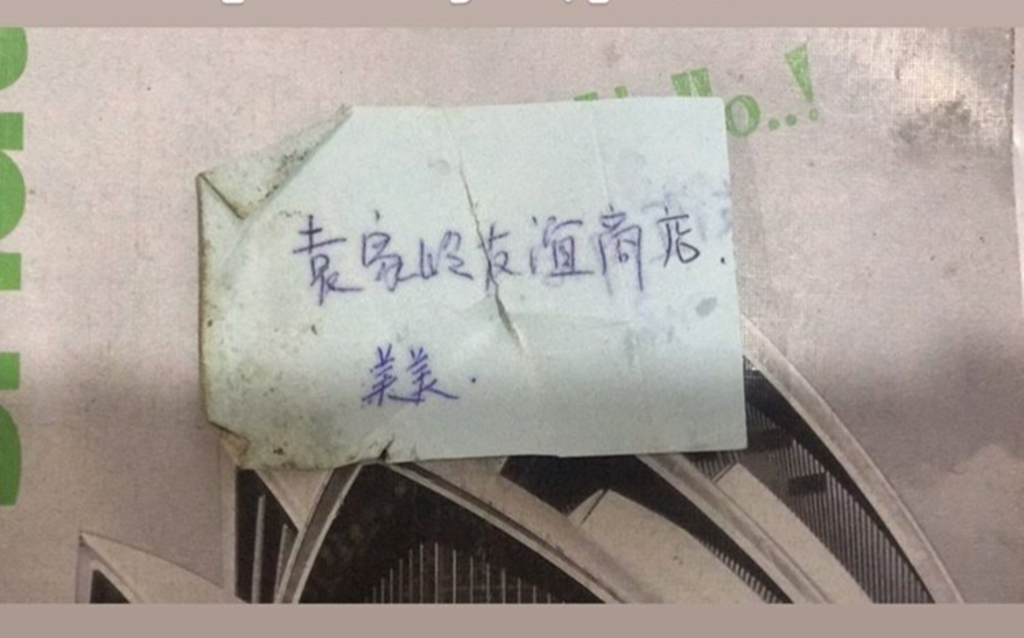 llo..!
袁家岭友谊商店.
美美.